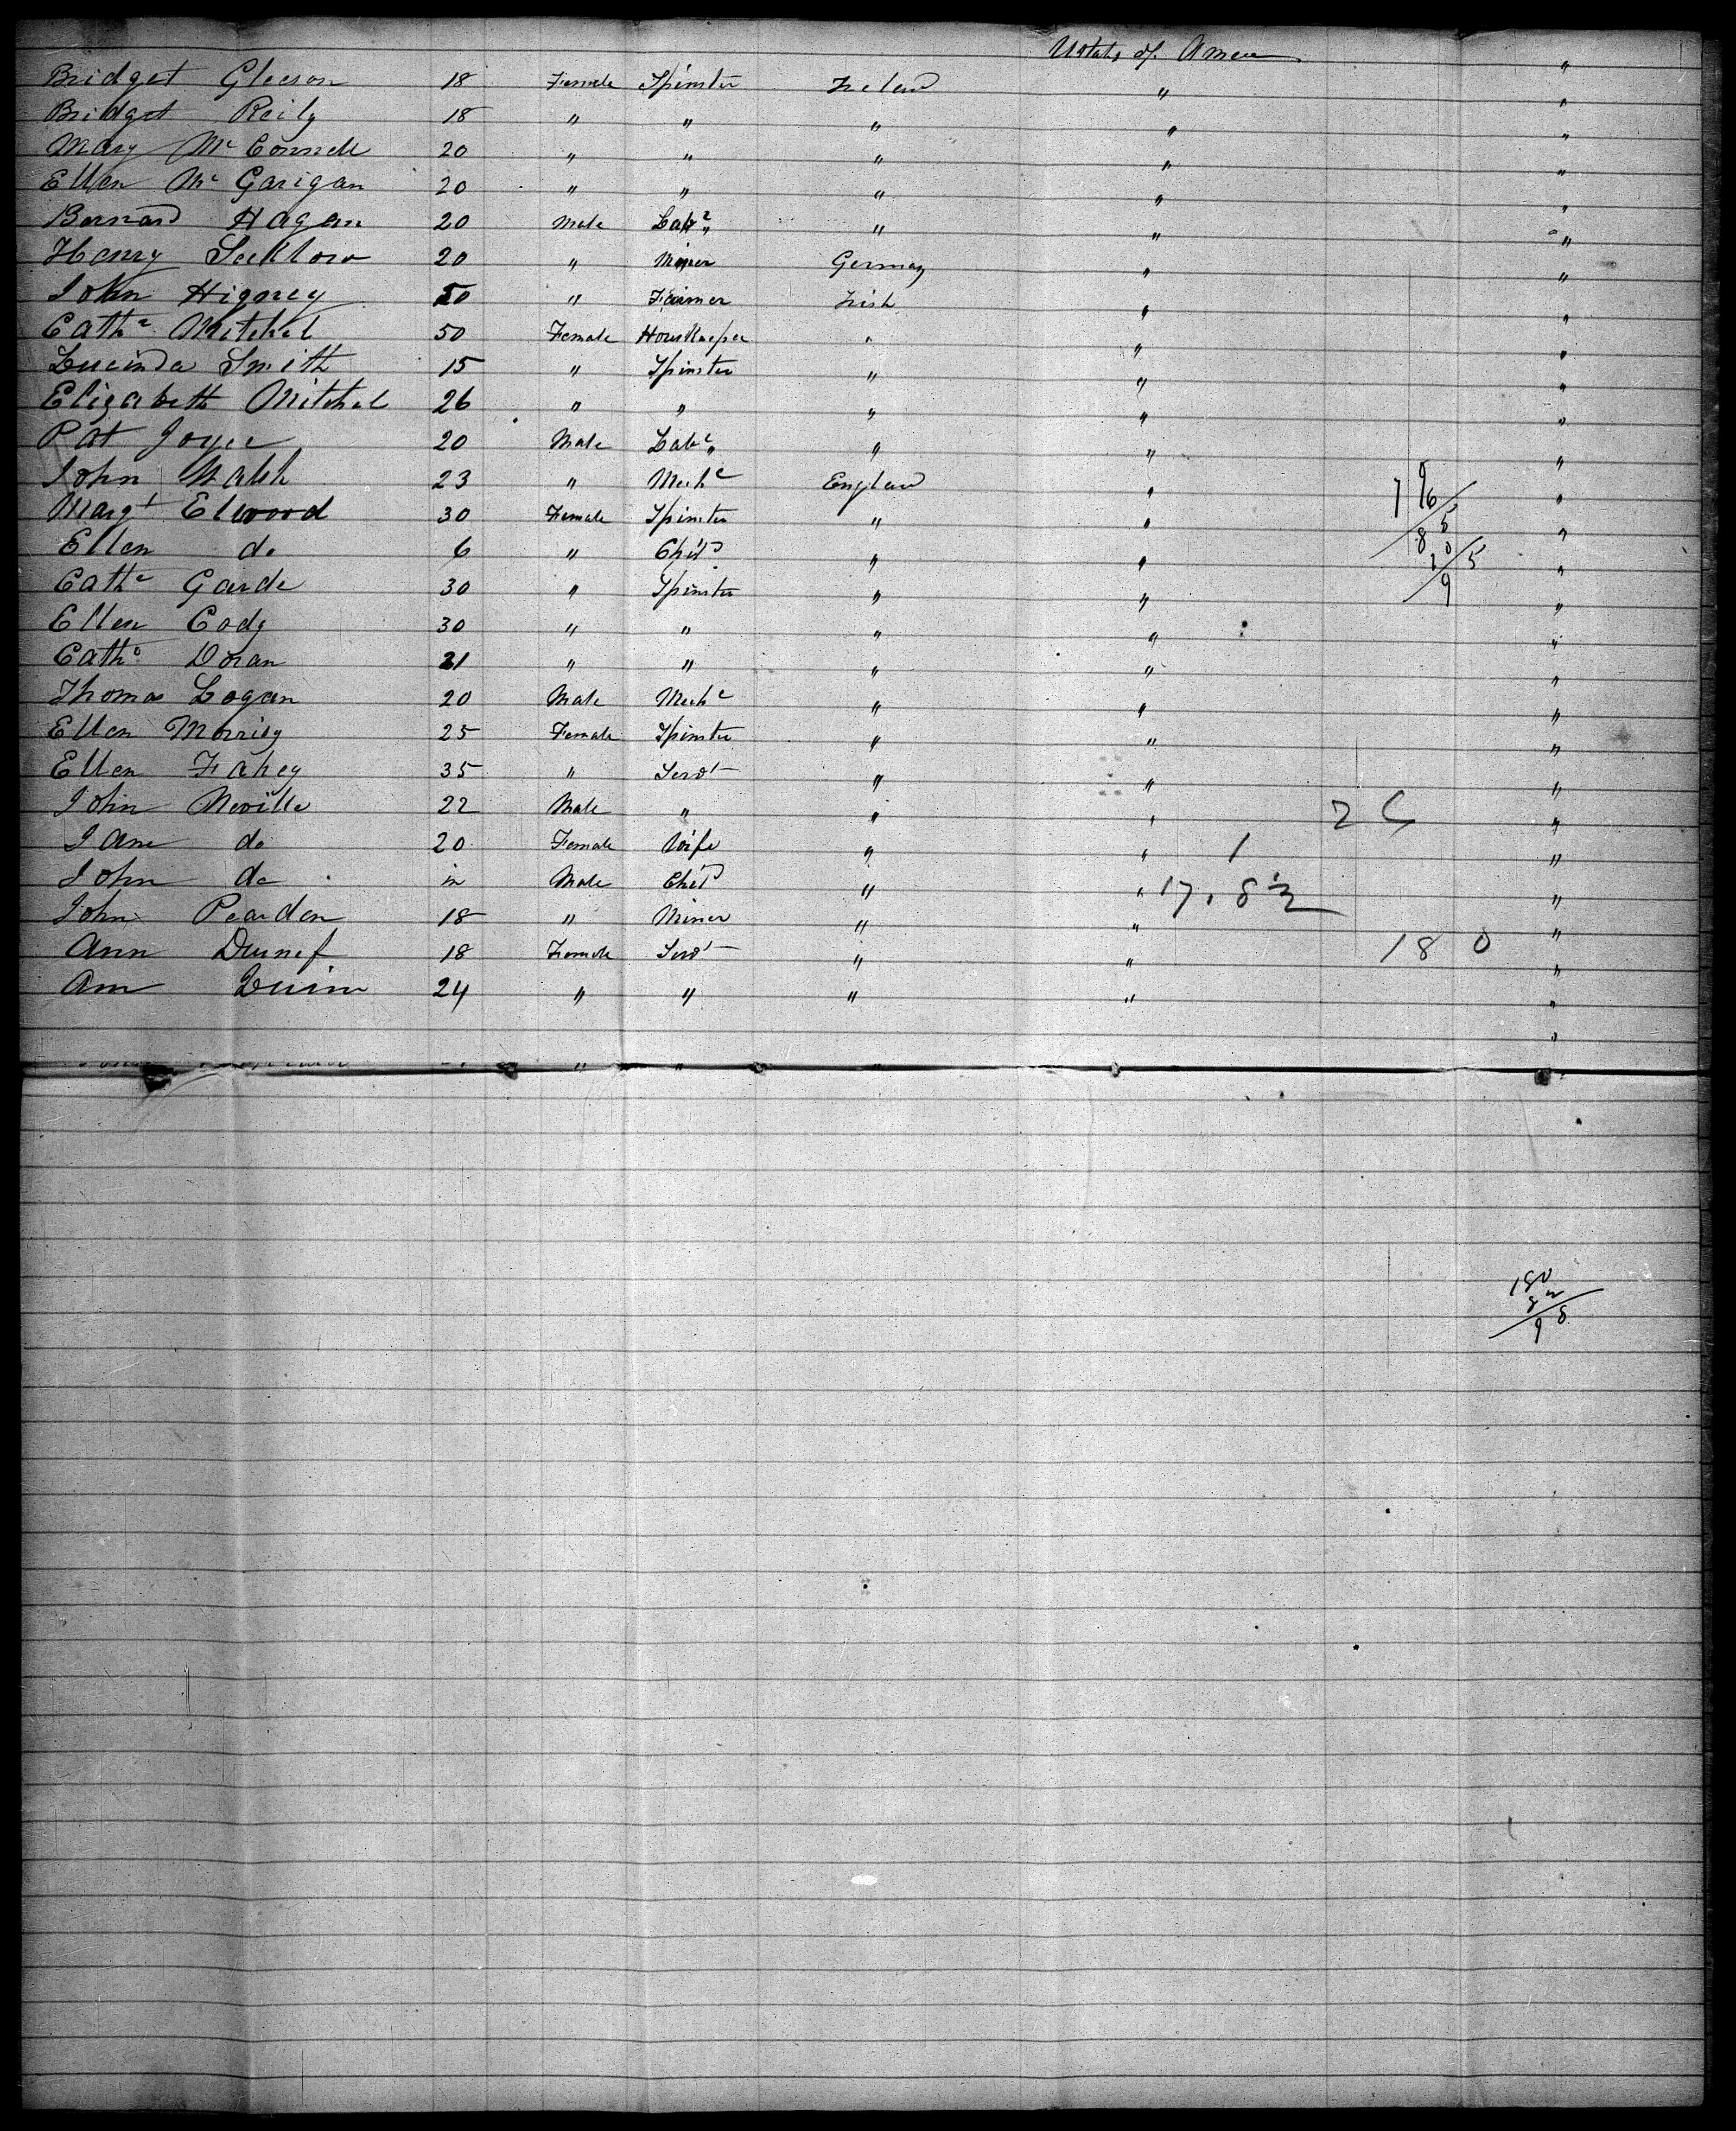 U States of Amer
Bridget Gleeson 18 Female Spinster Ireland " "
Bridget Reily 18 " " " " "
Mary Mc Connell 20 " " " " "
Ellen Mc Garigan 20 " " " " "
Bernard Hagan 20 Male Labr " " "
Henry 20 " Miner Germay " "
John Higney 50 " Farmer Irish " "
Cathe Mitchel 50 Female HousKeeper " " "
Lucinda Smith 15 " Spinster " " "
Elizabeth Mitchel 26 " " " " "
Pat Joyce 20 Male Labr " " "
John Walsh 23 " Mechc England " "
Margt Elwood 30 Female Spinster " " "
Ellen do 6 " Child " " "
Cathe Garde 30 " Spinster " " "
Ellen Cody 30 " " " " "
Cathe Doran 21 " " " " "
Thomas Logan 20 Male Mechc " " "
Ellen Morrisy 25 Female Spinster " " "
Ellen Fahey 35 " Servt " " "
John Neville 22 Male " " " "
Jane do 20 Female Wife " " "
John do in Male Child " " "
John Pearden 18 " Miner " " "
Ann 18 Female Servt " " "
Ann Quinn 24 " " " " "
180
180
82
98